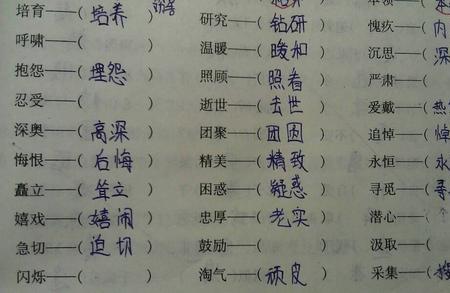 本领——( 本
培育——( 培养 ) 研究——( 钻研 ) 愧疚——( 内
呼啸——( ) 温暖——( 暖和 ) 沉思——( 深
抱怨——( 埋怨 ) 照顾——( 照看 ) 严肃——(
忍受——( ) 逝世——( 去世 ) 爱戴——( 热
深奥——( 高深 ) 团聚——( 团圆 ) 追悼——( 悼
悔恨——( 后悔 ) 精美——( 精致 ) 永恒——( 永
矗立——( 耸立 ) 困惑——( 疑惑 ) 寻觅——( 寻
嬉戏——( 嬉闹 ) 忠厚——( 老实 ) 潜心——(
急切——( 迫切 ) 鼓励——( ) 汲取——(
闪烁——( ) 淘气——( 顽皮 ) 采集——(